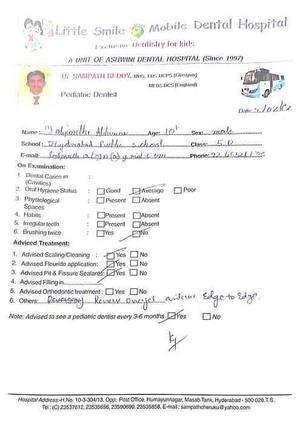 Little Smile Mobile Dental Hospital
Exclusive Dentistry for kids
A UNIT OF ASHWINI DENTAL HOSPITAL (Since 1997)
Dr. SAMPATH REDDY,
Pediatric Dentist
Date:
Name: Age: 10+ Sex: male
School: Hyderabad Public school Class: 5.D
E-mail: Phone:
On Examination:
1. Dental Caries in : (Cavities)
2. Oral Hygiene Status : Good Average Poor
3. Physiological Spaces : Present Absent
4. Habits : Present Absent
5. Irregular teeth : Present Absent
6. Brushing twice : Yes No
Advised Treatment:
1. Advised Scaling/Cleaning : Yes No
2. Advised Flouride application: Yes No
3. Advised Pit & Fissure Sealares: Yes No
4. Advised Filling in
5. Advised Orthodontic treatment : Yes No
6. Others: Reverse overjet anterior Edge to Edge.
Note: Advised to see a pediatric dentist every 3-6 months Yes No
Hospital Address: H.No. 10-3-304/13, Opp: Post Office, Humayunnagar, Masab Tank, Hyderabad - 500 028.T.S.
Tel: (C) 23537612, 23535656, 23590690, 23535858. E-mail: sampathcheruku@yahoo.com